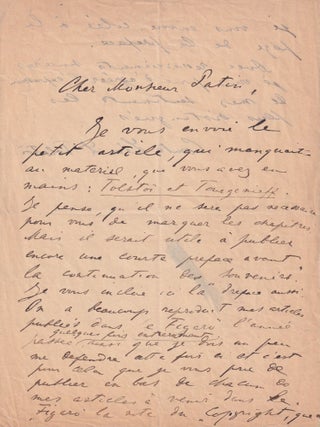 Cher Monsieur Patin,
Je vous envoie le
petit article, qui manquait
au materiel, que vous avez en
mains: Tolstoi et Tourgenieff
Je pense, qu'il ne sera pas necessaire
pour vous de marquer les chapitres.
Mais il serait utile à publier
encore une courte preface avant
la continuation des "Souvenirs".
Je vous inclue ici la "Preface aussi
On a beaucoup reproduit mes articles
publiés dans le Figaro l'année
quelques uns entierement
passée, mais que je dois un peu
me defendre cette fois et c'est
pour cela que je vous prie de
publier en bas de chacun de
mes articles à venir dans le
Figaro la note du "Copyright, que